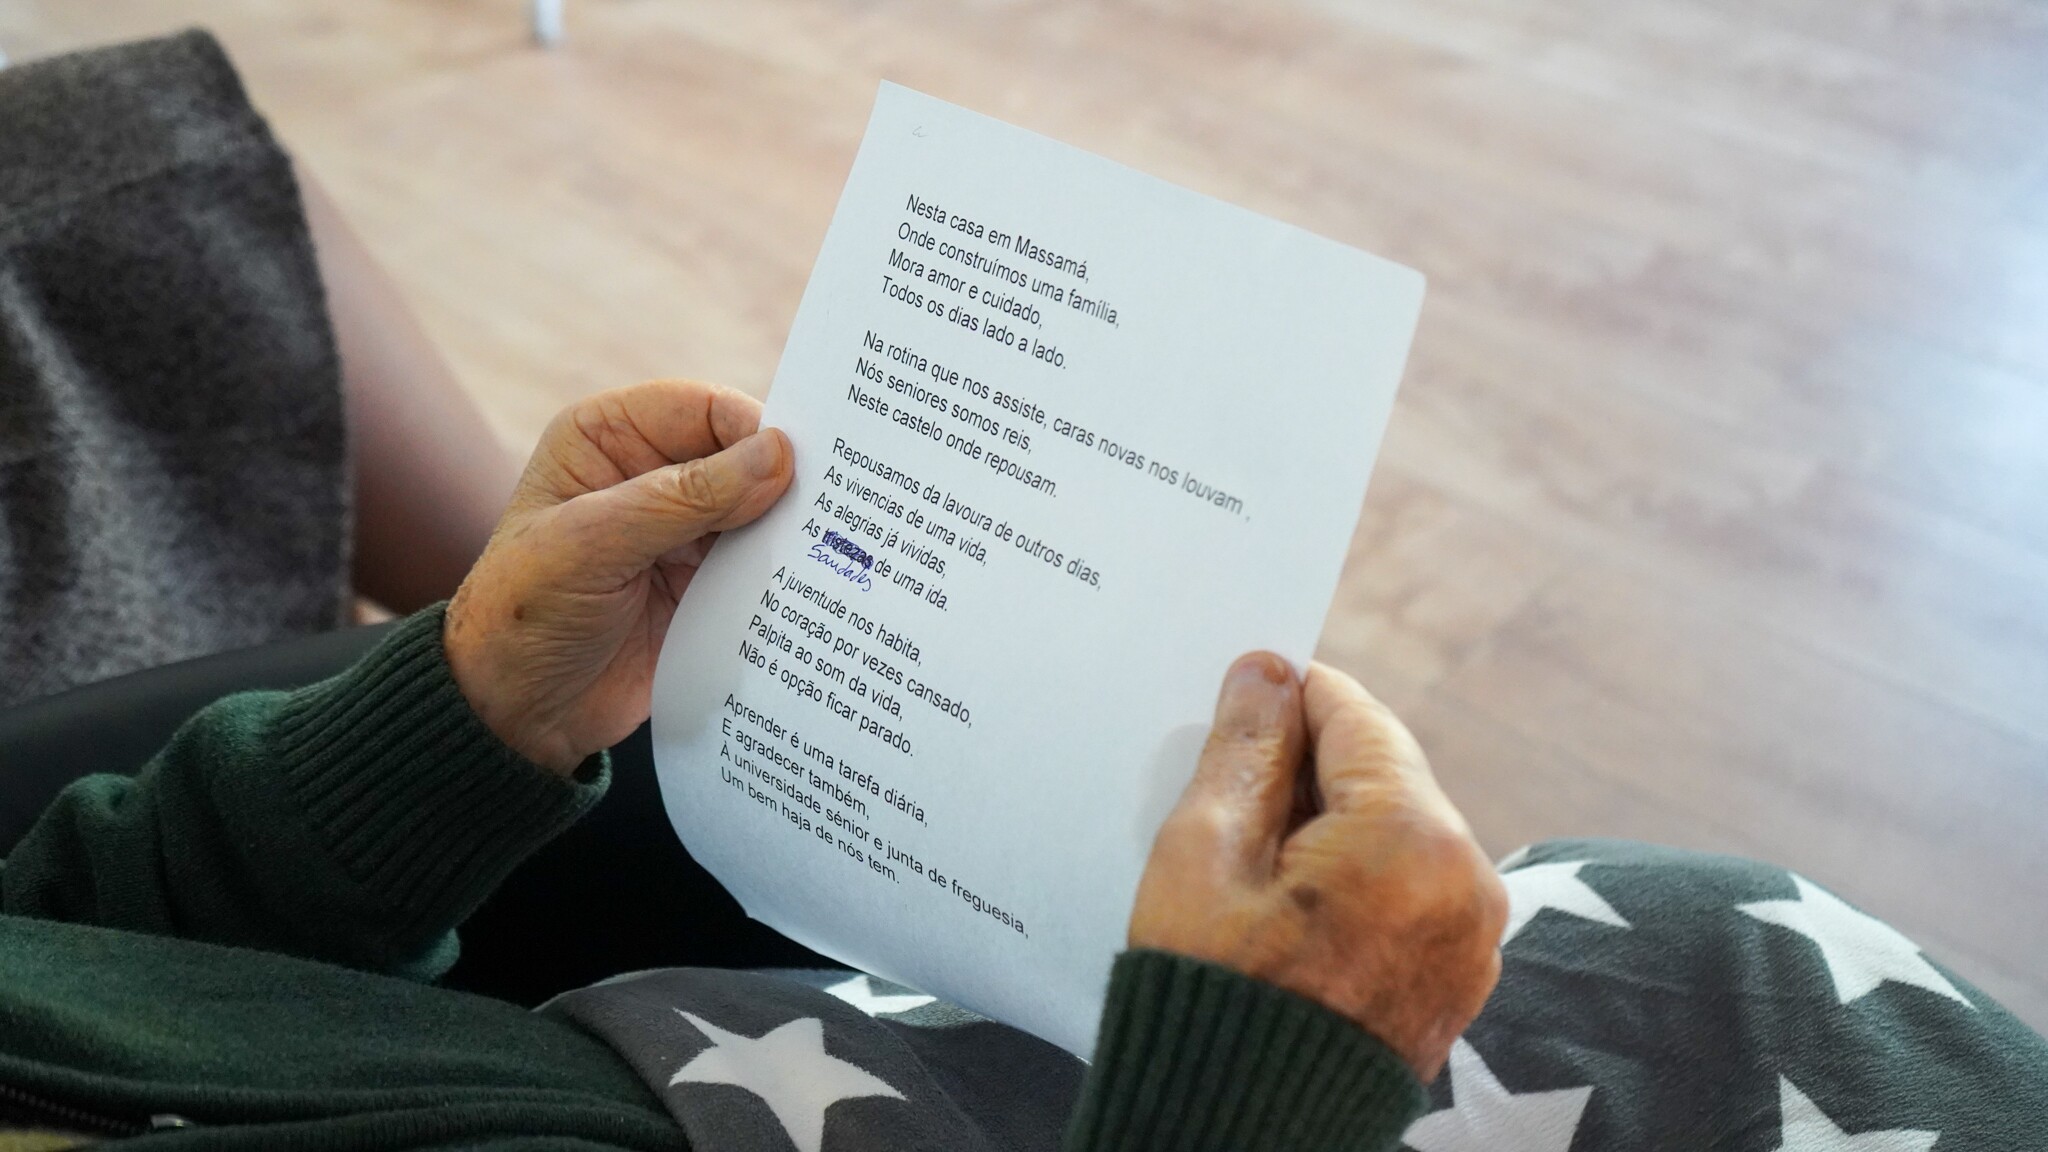 Nesta casa em Massamá,
Onde construímos uma família,
Mora amor e cuidado,
Todos os dias lado a lado.
Na rotina que nos assiste, caras novas nos louvam ,
Nós seniores somos reis,
Neste castelo onde repousam.
Repousamos da lavoura de outros dias,
As vivencias de uma vida,
As alegrias já vividas,
As tristezas de uma ida.
Saudades
A juventude nos habita,
No coração por vezes cansado,
Palpita ao som da vida,
Não é opção ficar parado.
Aprender é uma tarefa diária,
E agradecer também,
À universidade sénior e junta de freguesia,
Um bem haja de nós tem.